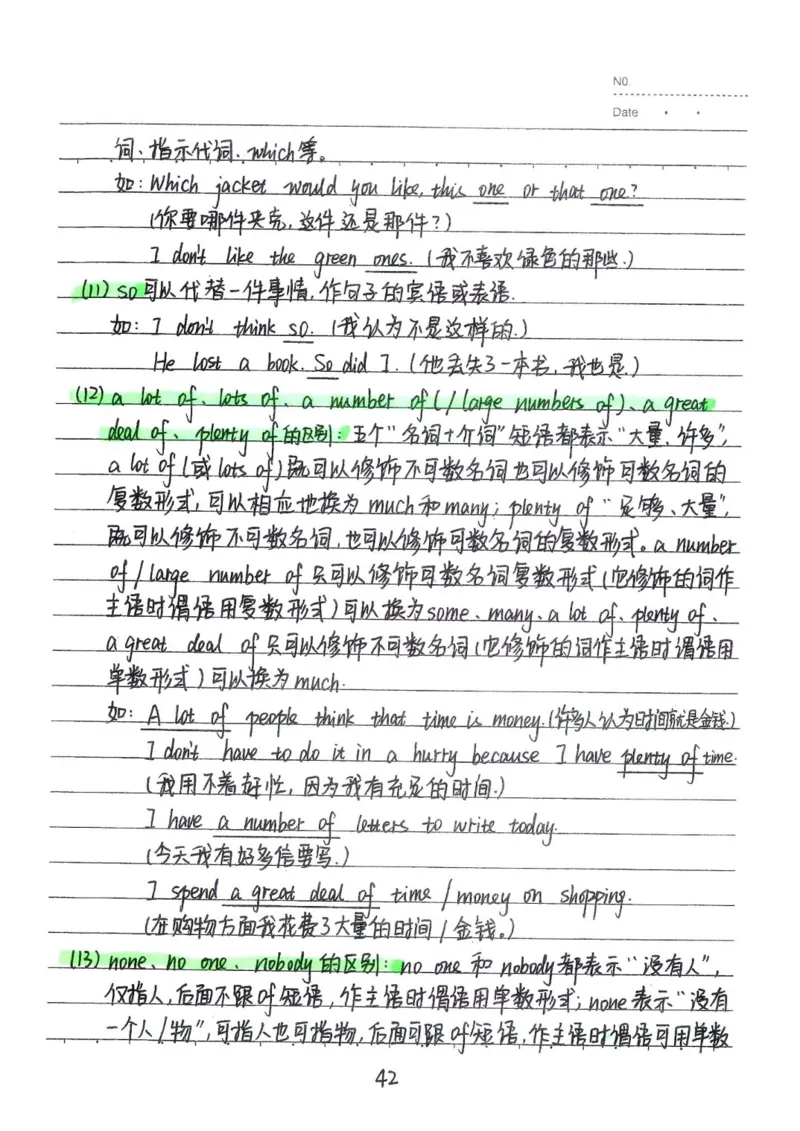 NO.
Date
词、指示代词、which等。
如: Which jacket would you like, this one or that one?
(你要哪件夹克, 这件还是那件?)
I don't like the green ones. (我不喜欢绿色的那些.)
(11) so可以代替一件事情, 作句子的宾语或表语.
如: I don't think so. (我认为不是这样的.)
He lost a book. So did I. (他丢失了一本书, 我也是.)
(12) a lot of、lots of、a number of (/ large numbers of)、a great
deal of、plenty of的区别: 五个“名词+介词”短语都表示“大量、许多”,
a lot of (或 lots of) 既可以修饰不可数名词也可以修饰可数名词的
复数形式, 可以相应地换为 much 和 many; plenty of “足够、大量”,
既可以修饰不可数名词, 也可以修饰可数名词的复数形式。a number
of / large number of 只可以修饰可数名词复数形式 (它修饰的词作
主语时谓语用复数形式) 可以换为 some、many、a lot of、plenty of、
a great deal of 只可以修饰不可数名词 (它修饰的词作主语时谓语用
单数形式) 可以换为 much.
如: A lot of people think that time is money. (许多人认为时间就是金钱.)
I don't have to do it in a hurry because I have plenty of time.
(我用不着匆忙, 因为我有充足的时间.)
I have a number of letters to write today.
(今天我有好多信要写.)
I spend a great deal of time / money on shopping.
(在购物方面我花费了大量的时间 / 金钱。)
(13) none、no one、nobody 的区别: no one 和 nobody 都表示“没有人”,
仅指人, 后面不跟 of 短语, 作主语时谓语用单数形式; none 表示“没有
一个人/物”, 可指人也可指物, 后面可跟 of 短语, 作主语时谓语可用单数
42